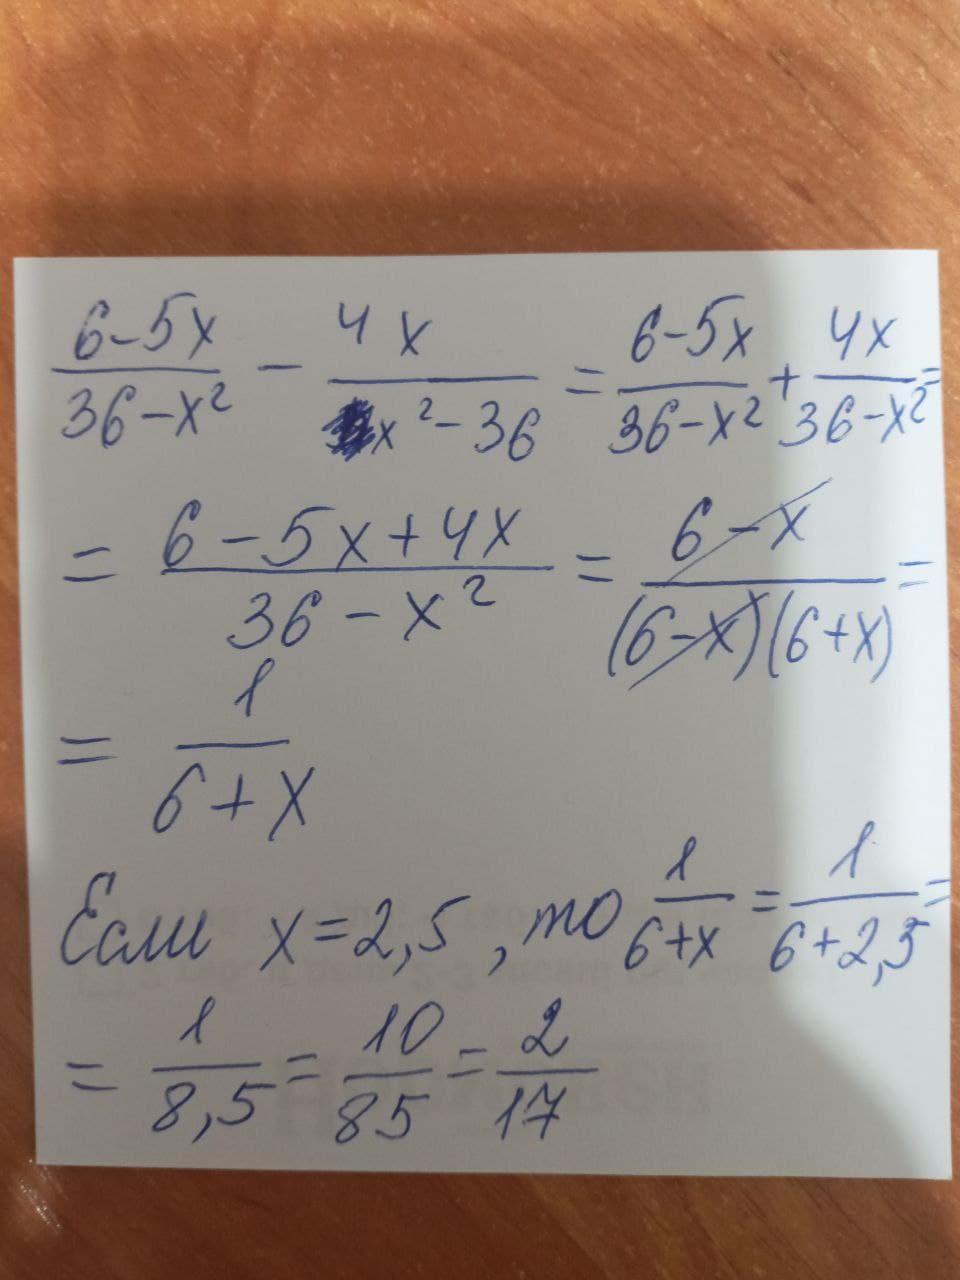 (6-5x)/(36-x²) - 4x/(x²-36) = (6-5x)/(36-x²) + 4x/(36-x²) =
= (6-5x+4x)/(36-x²) = (6-x)/((6-x)(6+x)) =
= 1/(6+x)
Если x=2,5, то 1/(6+x) = 1/(6+2,5) =
= 1/8,5 = 10/85 = 2/17